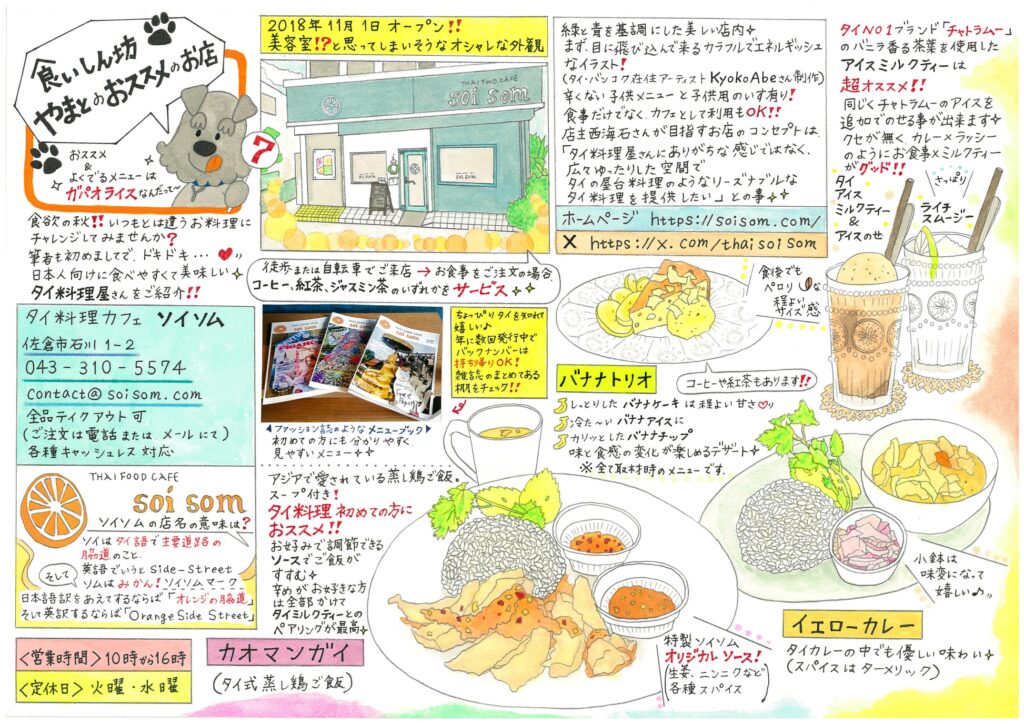 食いしん坊
やまとのおススメのお店
おススメ
&
よくでるメニューは
ガパオライスなんだって〜
7
食欲の秋!! いつもとは違うお料理に
チャレンジしてみませんか?
筆者も初めましてで、ドキドキ・・・
日本人向けに食べやすくて美味しい
タイ料理屋さんをご紹介!!
タイ料理カフェ ソイソム
佐倉市石川 1-2
043-310-5574
contact@soisom.com
全品テイクアウト可
(ご注文は電話または、メールにて)
各種キャッシュレス対応
THAI FOOD CAFE
soi som
ソイソムの店名の意味は?
ソイはタイ語で主要道路の
脇道のこと。
英語でいうとSide-Street
そして
ソムはみかん! ソイソムマーク
日本語訳をあえてするならば「オレンジの脇道」
そして英訳するならば「Orange Side Street」
<営業時間> 10時から16時
<定休日> 火曜・水曜
2018年11月1日オープン!!
美容室!?と思ってしまいそうなオシャレな外観
THAI FOOD CAFE
soi som
soi som
徒歩または自転車でご来店→お食事をご注文の場合
コーヒー、紅茶、ジャスミン茶のいずれかをサービス
THAI FOOD CAFE
soi som
ちょっぴりタイを知れて
嬉しい♪
年に数回発行中で
バックナンバーは
持ち帰りOK!
雑誌のまとめてある
棚をチェック!!
ファッション誌のようなメニューブック
初めての方にも分かりやすく
見やすいメニュー
アジアで愛されている蒸し鶏ご飯。
スープ付き!
タイ料理初めての方に
おススメ!!
お好みで調節できる
ソースでご飯が
すすむ
辛めがお好きな方
は全部かけて
タイミルクティーとの
ペアリングが最高
カオマンガイ
(タイ式蒸し鶏ご飯)
特製ソイソム
オリジナルソース!
(生姜、ニンニクなど
各種スパイス)
緑と青を基調にした美しい店内
まず、目に飛び込んで来るカラフルでエネルギッシュ
なイラスト!
(タイ・バンコク在住アーティストKyokoAbeさん制作)
辛くない子供メニューと子供用のいす有り!
食事だけでなく、カフェとして利用もOK!!
店主西海石さんが目指すお店のコンセプトは、
「タイ料理屋さんにありがちな感じではなく、
広々ゆったりした空間で
タイの屋台料理のようなリーズナブルな
タイ料理を提供したい」との事
ホームページ https://soisom.com/
X https://x.com/thaisoisom
食後でも
ペロリな
程よい
サイズ感
バナナトリオ
コーヒーや紅茶もあります!!
しっとりしたバナナケーキは程よい甘さ
冷た〜いバナナアイスに
カリッとしたバナナチップ
味と食感の変化が楽しめるデザート
※全て取材時のメニューです。
タイNO1ブランド「チャトラムー」
のバニラ香る茶葉を使用した
アイスミルクティーは
超オススメ!!
同じくチャトラムーのアイスを
追加でのせる事が出来ます
クセが無く、カレー×ラッシー
のようにお食事×ミルクティー
がグッド!!
タイ
アイス
ミルクティー
&
アイスのせ
さっぱり
ライチ
スムージー
小鉢は
味変になって
嬉しい♪
イエローカレー
タイカレーの中でも優しい味わい
(スパイスはターメリック)